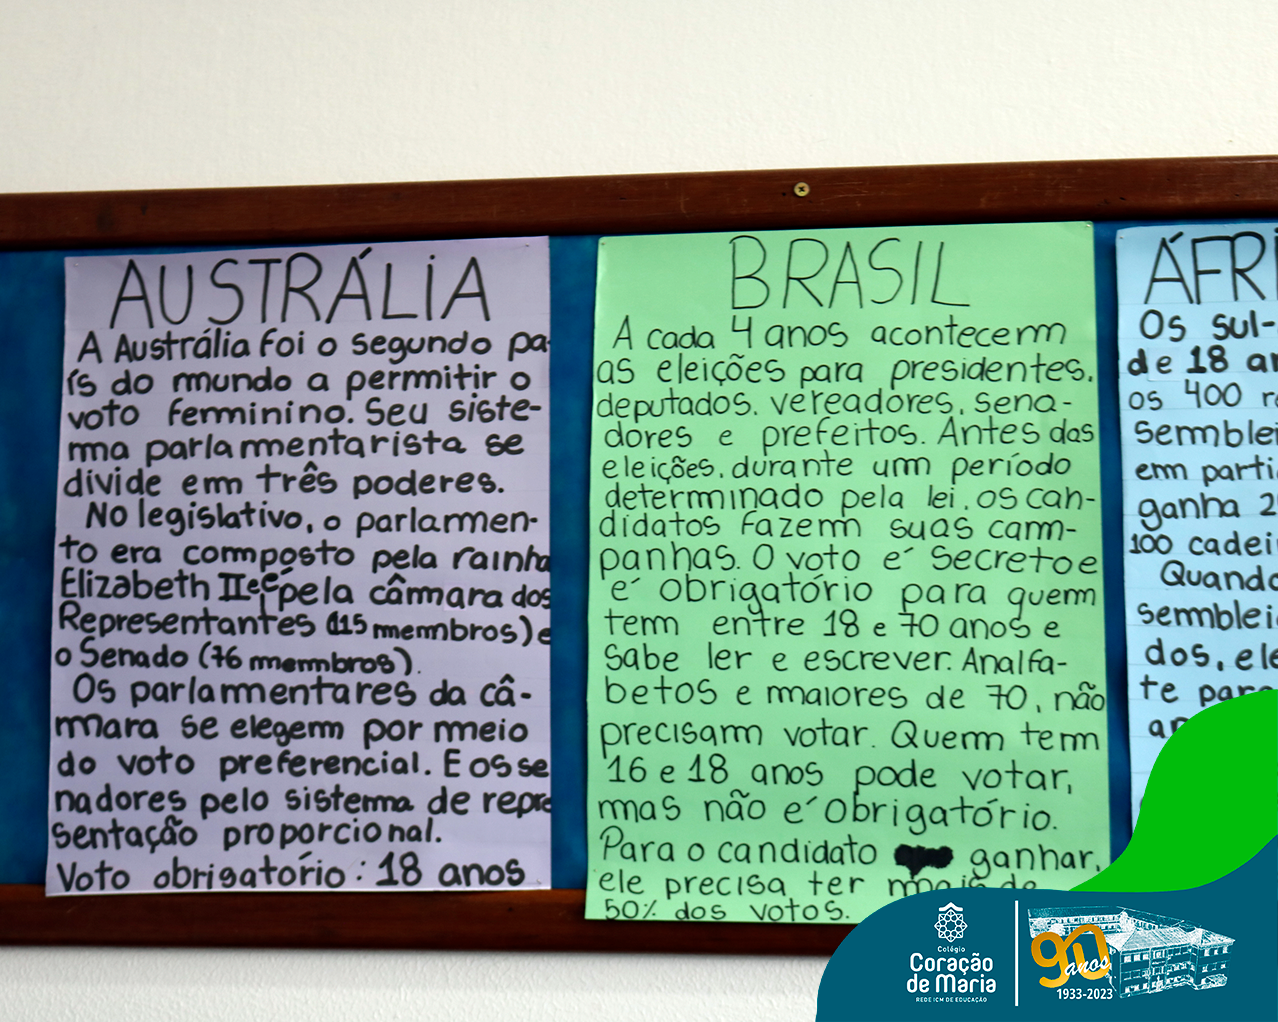 AUSTRÁLIA
A Austrália foi o segundo pa-
ís do mundo a permitir o
voto feminino. Seu siste-
ma parlamentarista se
divide em três poderes.
No legislativo, o parlamen-
to era composto pela rainha
Elizabeth II e pela câmara dos
Representantes (115 membros) e
o Senado (76 membros).
Os parlamentares da câ-
mara se elegem por meio
do voto preferencial. E os se
nadores pelo sistema de repre
sentação proporcional.
Voto obrigatório: 18 anos
BRASIL
A cada 4 anos acontecem
as eleições para presidentes,
deputados, vereadores, sena-
dores e prefeitos. Antes das
eleições, durante um período
determinado pela lei, os can-
didatos fazem suas cam-
panhas. O voto é secreto e
é obrigatório para quem
tem entre 18 e 70 anos e
sabe ler e escrever. Analfa-
betos e maiores de 70, não
precisam votar. Quem tem
16 e 18 anos pode votar,
mas não é obrigatório.
Para o candidato ganhar,
ele precisa ter mais de
50% dos votos.
ÁFRI
Os sul-
de 18 an
os 400 re
semblei
em parti
ganha 2
100 cadei
Quando
semblei
dos, ele
te para
Colégio
Coração
de Maria
REDE ICM DE EDUCAÇÃO
90
anos
1933-2023